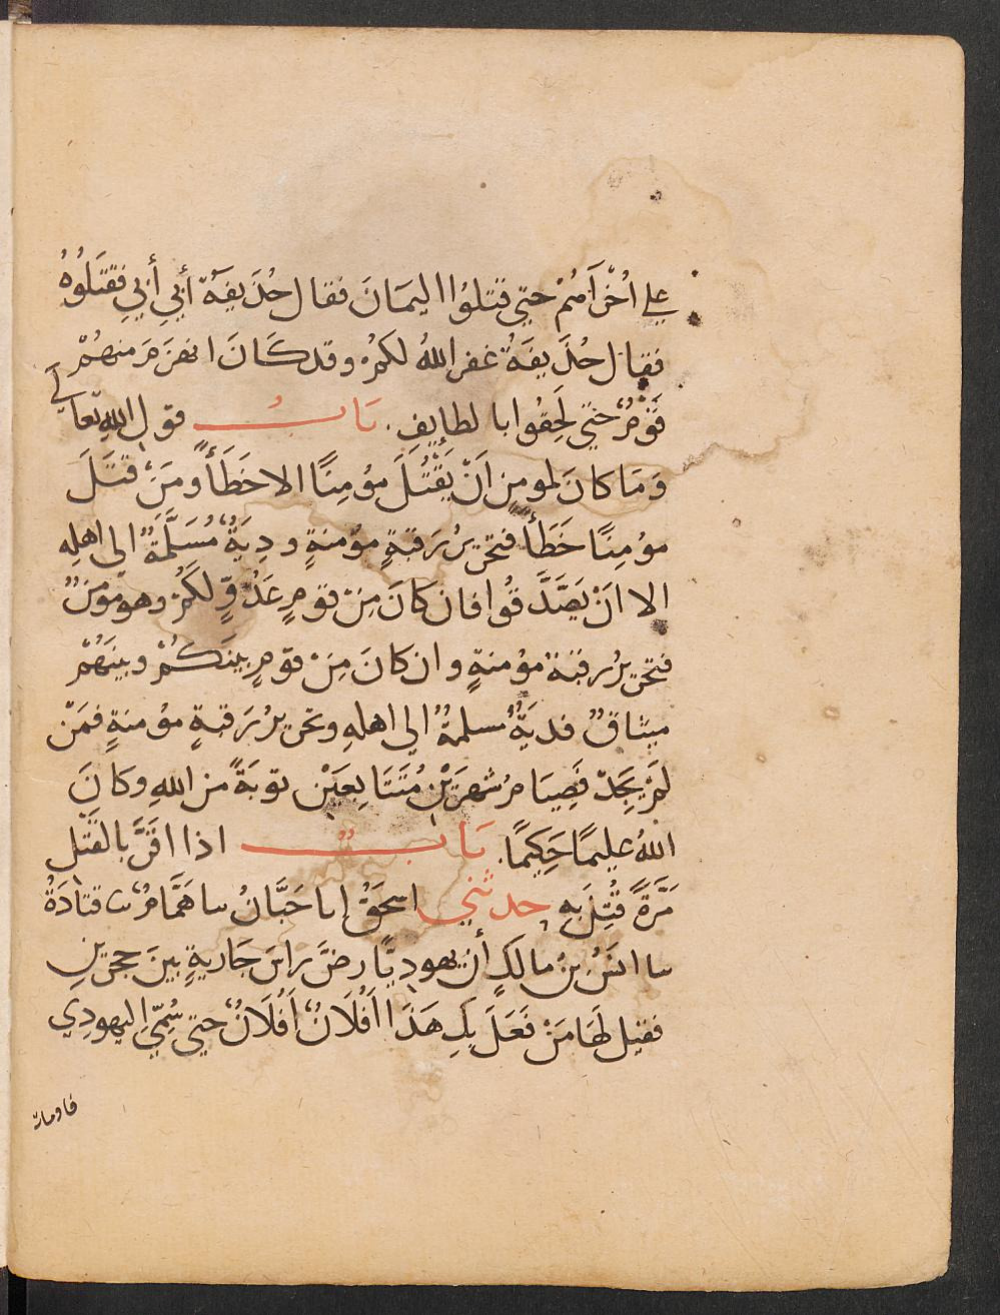 علي اُخْرَاَهُمْ حتي قتلوُا اليمَانَ فقال حُذَيفَةُ أَبِي أَبِي فقتَلُوُهُ
فقال حُذَيفَةُ غفر اللهُ لكمُ وقدكَانَ انهزَمَ منهُمْ
قَوْمٌ حَتي لَحِقُوا بالطايِفِ. بَابُ قول اللهِ تَعَالي
وَمَا كانَ لمومِنٍ اَنْ يَقْتُلَ مؤمِنًا الا خَطَأً ومَنْ قَتَلَ
مؤمِنًا خَطَأً فتحريرُ رَقبةٍ مؤمنةٍ ودِيَةٌ مُسَلَّمَةٌ الى اهلِهِ
الا انْ يَصَّدَّقُوا فان كانَ مِنْ قومٍ عَدُوٍّ لَكُمْ وهو مؤمِنٌ
فتحريرُ رقبَةٍ مؤمنةٍ وان كانَ مِنْ قومٍ بينَكُمْ وبينَهُمْ
ميثاقٌ فديَةٌ مُسلمةٌ الي اهلهِ وتحريرُ رَقبةٍ مؤمنةٍ فمَنْ
لمْ يَجِدْ فَصِيَامُ شهرَيْنِ مُتَتَابِعَيْنِ توبَةً من اللهِ وكانَ
اللهُ عليمًا حَكِيمًا. بَابٌ اذا اقَرَّ بالقَتْلِ
مَرَّةً قُتِلَ بِهِ حدثني اسحَقُ انا حَبَّانُ سا هَمَّامٌ سا قتادَةُ
سا انَسُ بنُ مالكٍ أن يهودِيًّا رضَّ راسَ جَاريةٍ بينَ حجرَيْنِ
فقيل لَهَا مَنْ فَعَلَ بِكِ هَذَا اَفُلَانٌ اَفُلَانٌ حتي سُمِّيَ اليهودِي
فاومات